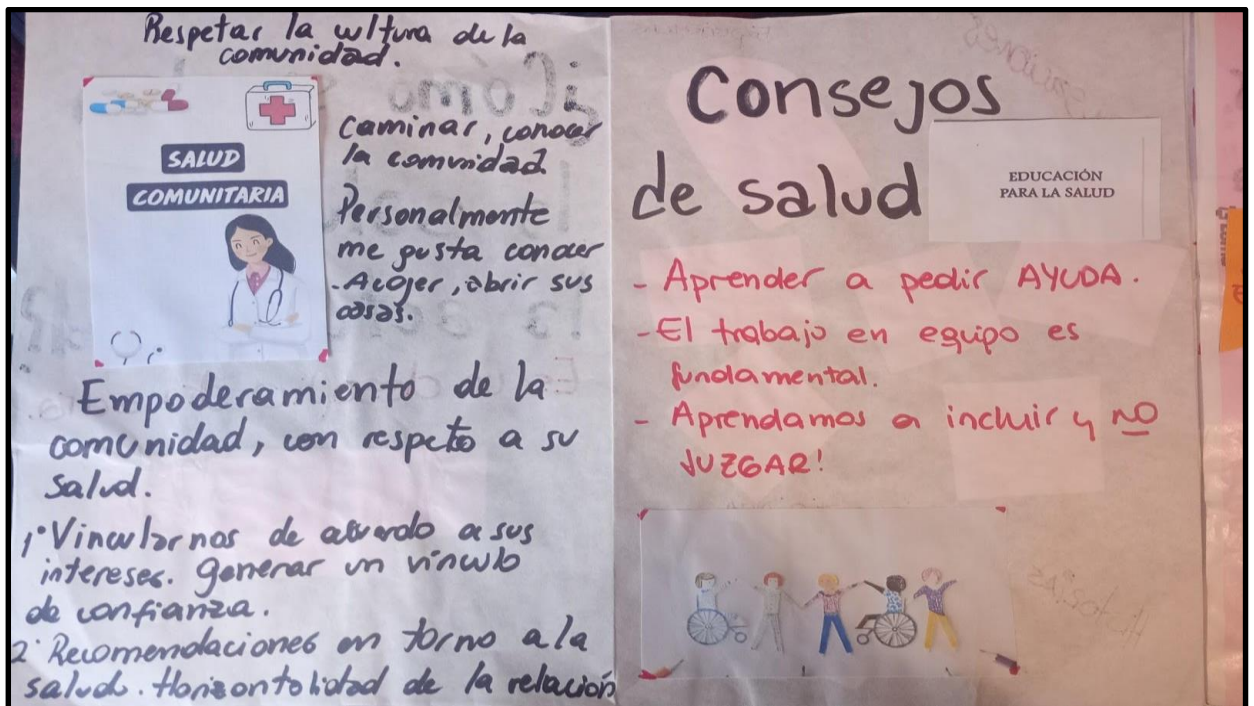 Respetar la cultura de la
comunidad.
SALUD
COMUNITARIA
Caminar, conocer
la comunidad
Personalmente
me gusta conocer
-Acojer, abrir sus
casas.
Empoderamiento de la
comunidad, con respeto a su
salud.
1° Vincularnos de acuerdo a sus
intereses. generar un vínculo
de confianza.
2° Recomendaciones en torno a la
salud. Horisontalidad de la relación
Consejos
de salud
EDUCACIÓN
PARA LA SALUD
- Aprender a pedir AYUDA.
- El trabajo en equipo es
fundamental.
- Aprendamos a incluir y no
JUZGAR!